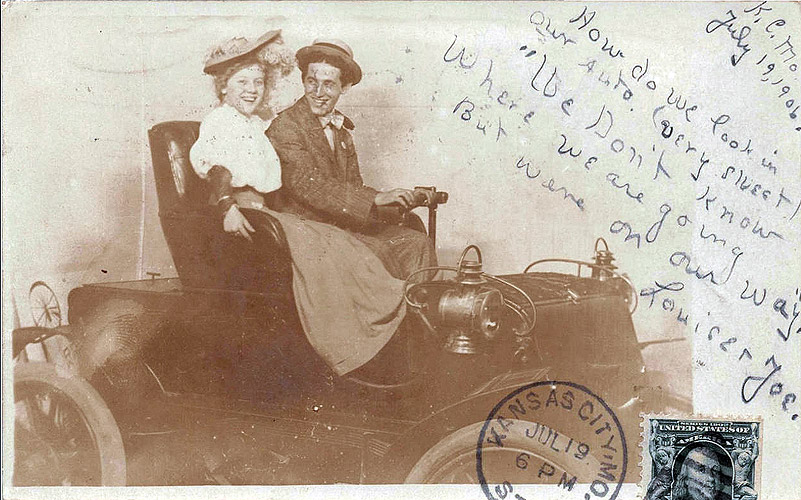 K.C. Mo.
July 19, 1906.
How do we look in
our auto. (very sweet)
"We Don't know
Where we are going
But were on our way."
Louiser Joe.
KANSAS CITY, MO.
JUL 19
6 PM
SERIES 1902
UNITED STATES OF
AMERICA